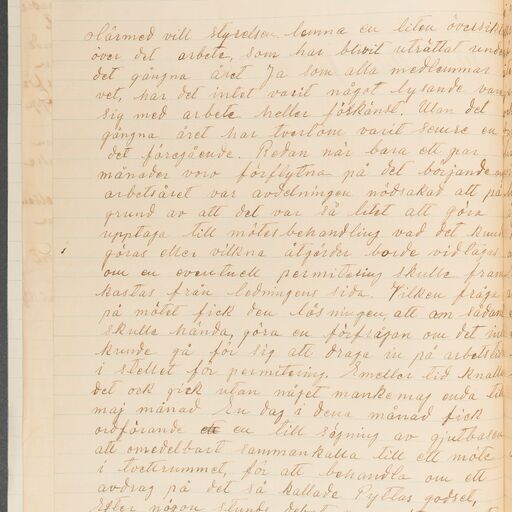 Härmed vill styrelsen lemna en liten översikt
över det arbete, som har blivit uträttat under
det gångna året Ja som alla medlemmar
vet, har det intet varit något lysande vare
sig med arbete heller förtjänst. Utan det
gångna året har tvertom varit semre en
det föregående. Redan när bara ett par
månader voro förflytna på det börjande
arbetsåret var avdelningen nödsakad att på
grund av att det var så litet att göra
upptaga till mötesbehandling vad det kunde
göras eller vilkna åtgärder borde vidtagas
om en eventuell permitering skulle fram
kastas från ledningens sida. Vilken fråga
på mötet fick den lösningen, att om sådan
skulle hända, göra en förfrågan om det inte
kunde gå för sig att draga in på arbetstid
i stellet för permitering. Emeller tid knalla
det ock gick utan något mankemang enda til
maj månad En dag i dena månad fick
ordförande en till sägning av gjutbasen
att omedelbart sammankalla till ett möte
i tvettrummet, för att behandla om ett
avdrag på det så kallade Pyttas godset,
Efter någon stunds